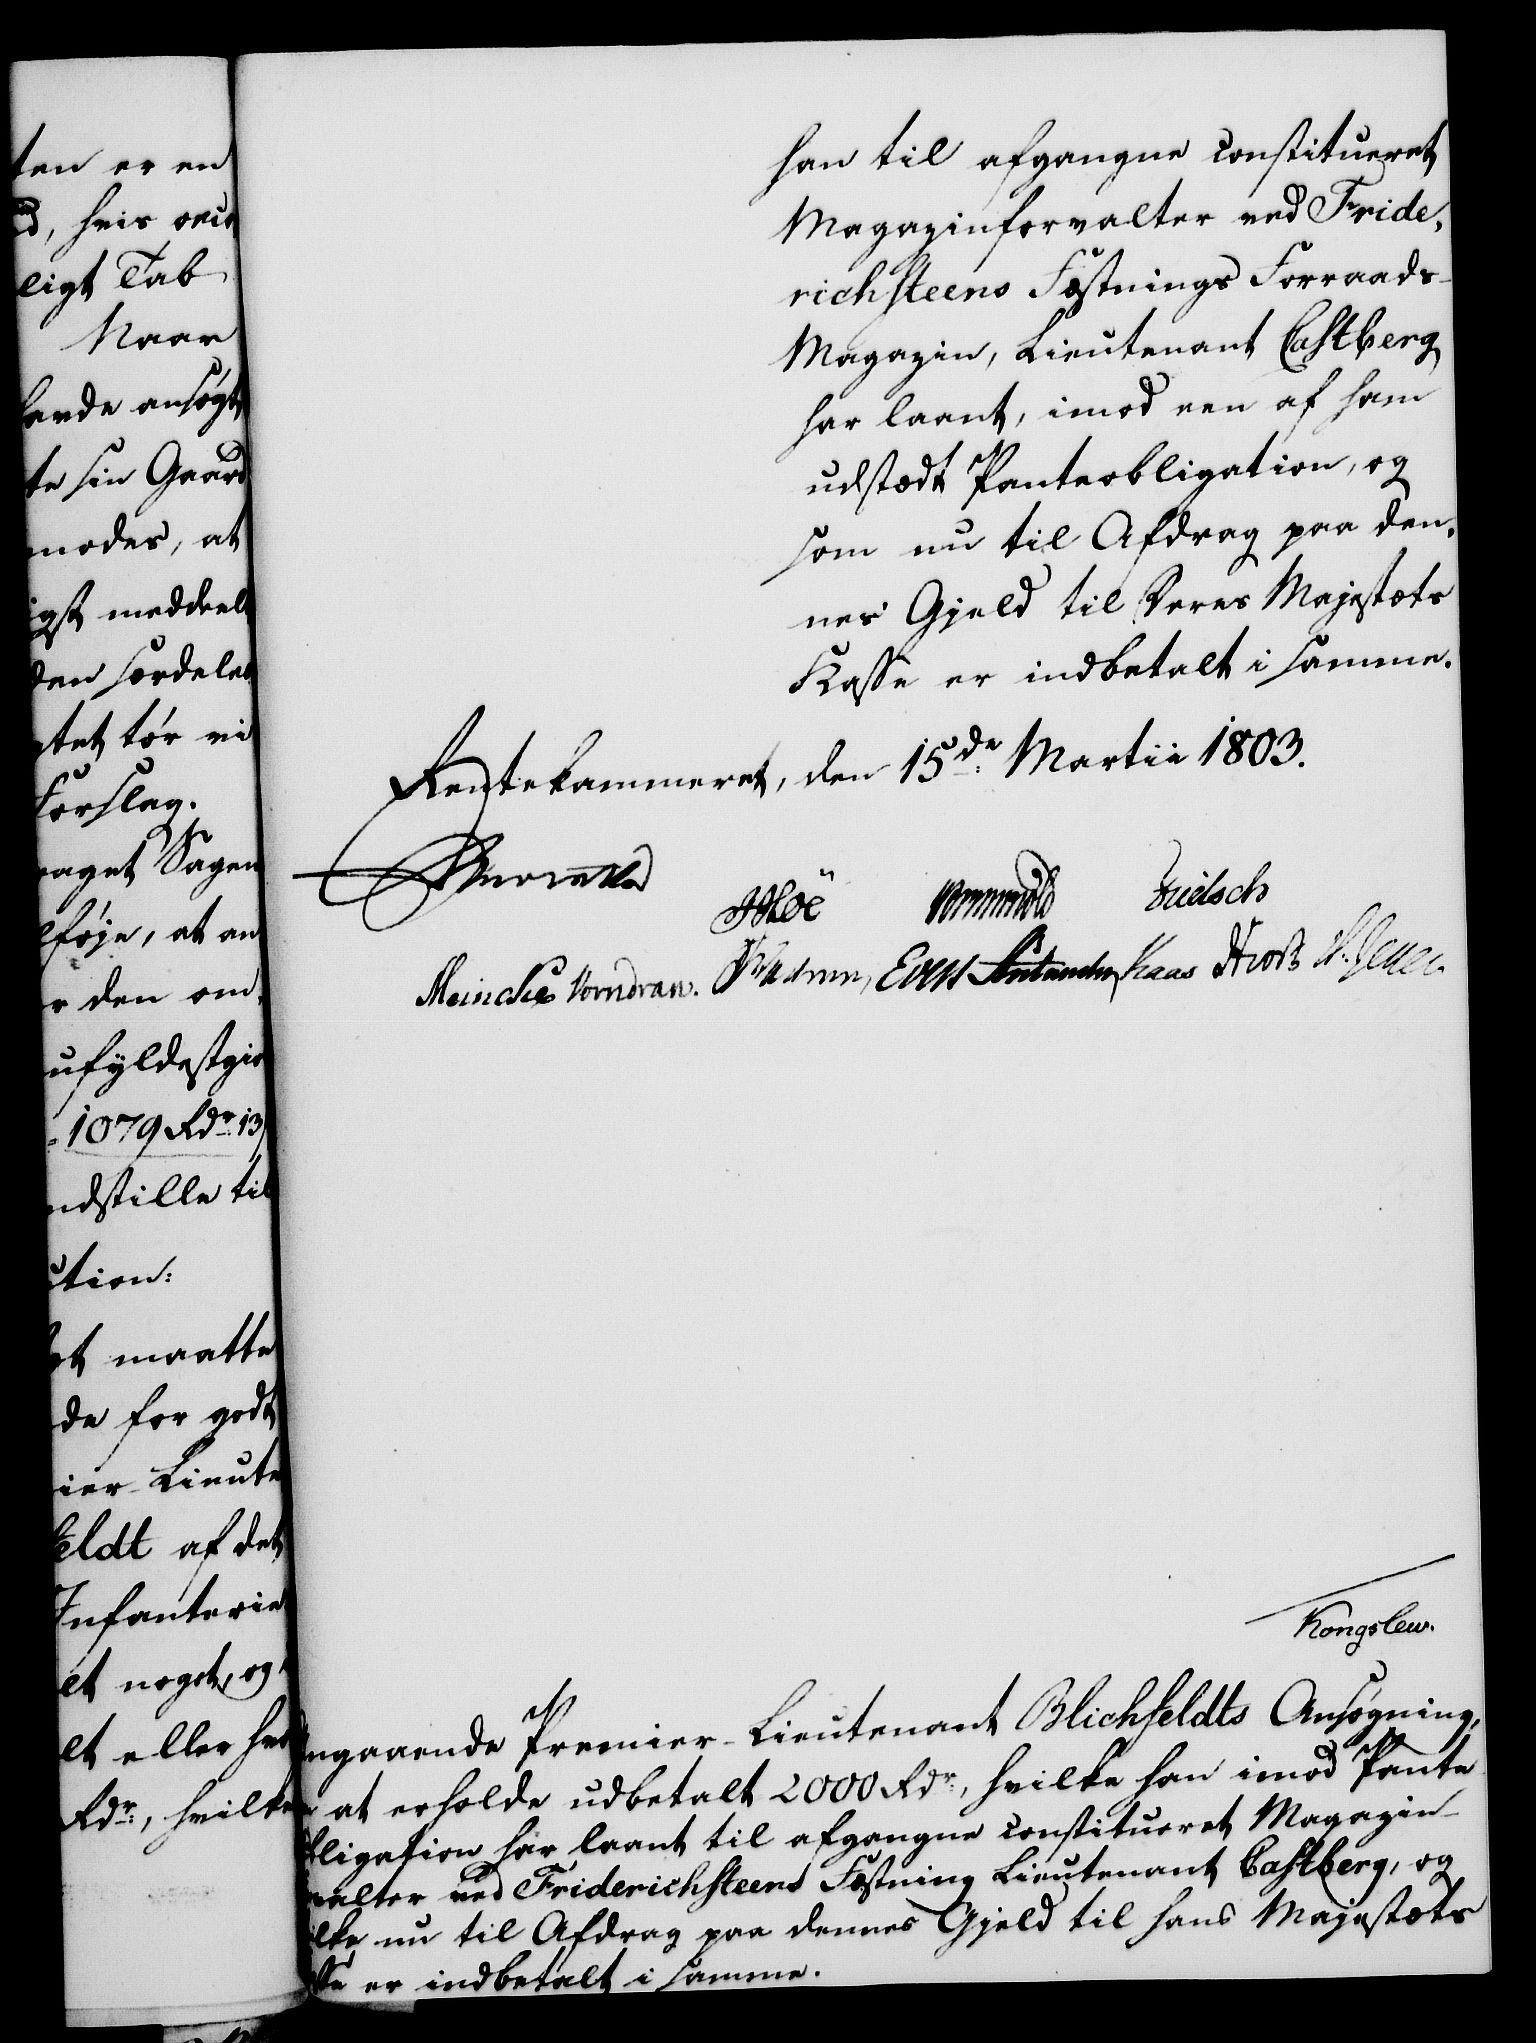 ten er en
d, hvis
ligt Tab
Naar
havde ansøgt
te sin Gaard
modes, at
igst meddeelt
den særdeles
tet tør vi
Forslag.
raget Sagen
lføje, at an
r den om,
ufyldestgiø
1079 Rdr 13
ndstille til
ution:
et maatte
de for godt
ier-Lieute
feldt af det
Infanterie
et noget, og
et eller
Rdr., hvilke
han til afgangne constitueret
Magazinforvalter ved Fride,
richsteens Fæstnings Forraads-
Magazin, Lieutenant Castberg
har laant, imod een af ham
udstædt Panteobligation, og
som nu til Afdrag paa den,
nes Gjeld til Deres Majestæts
Kasse er indbetalt i samme.
Rentekammeret, den 15de Martii 1803.
Meincke Vorndran. Kaas
Kongslew.
ngaaende Premier-Lieutenant Blichfeldts Ansøgning,
at erholde udbetalt 2000 Rdr., hvilke han imod Pante
bligation har laant til afgangne constitueret Magazin-
valter ved Friderichsteens Fæstning Lieutenant Castberg, og
ilke nu til Afdrag paa dennes Gjeld til hans Majestæts
sse er indbetalt i samme.